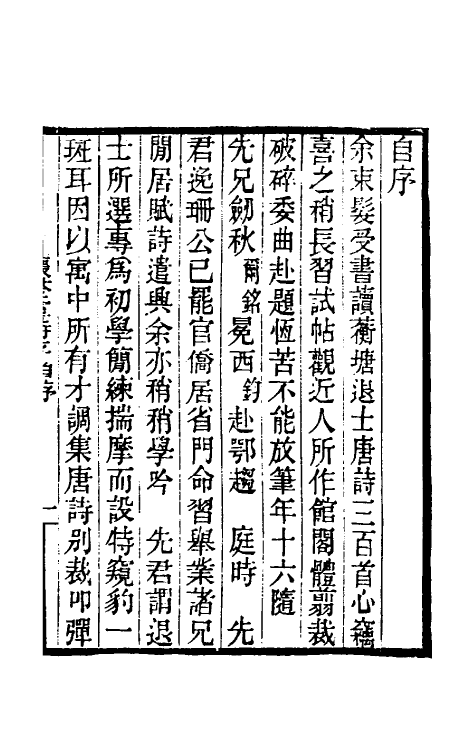 自序
余束髮受書讀蘅塘退士唐詩三百首心竊
喜之稍長習試帖觀近人所作館閣體翦裁
破碎委曲赴題恆苦不能放筆年十六隨
先兄劒秋爾銘冕西釣赴鄂趨　庭時　先
君逸珊公已罷官僑居省門命習舉業諸兄
閒居賦詩遣興余亦稍稍學吟　先君謂退
士所選專爲初學簡練揣摩而設特窺豹一
斑耳因以寓中所有才調集唐詩別裁叩彈
自序
一